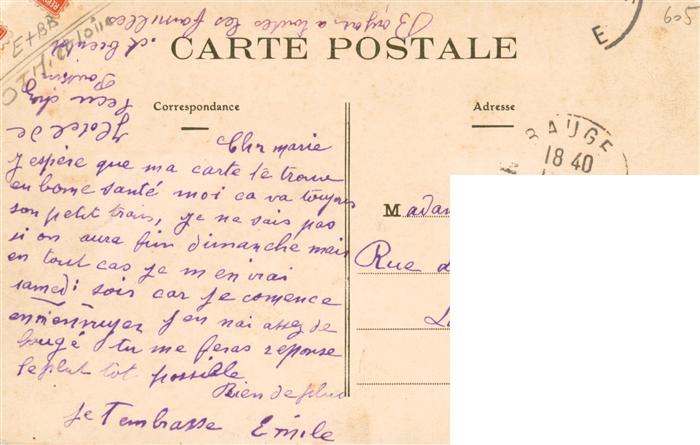 Bonjour a toutes les familles
et bientot
CARTE POSTALE
E
605
E+BB
Correspondance
Adresse
BAUGE
18 40
Hotel de
chez
Poussin
Cher marie
j espère que ma carte te trouve
en bonne santé moi ca va toujours
son petit train, je ne sais pas
si on aura fini dimanche mais
en tout cas je m en irai
samedi soir car je comence
a j en n ai assez de
bougé tu me feras reponse
le plut tot possible
Rien de plus
je T embrasse Emile
Madam
Rue d
L